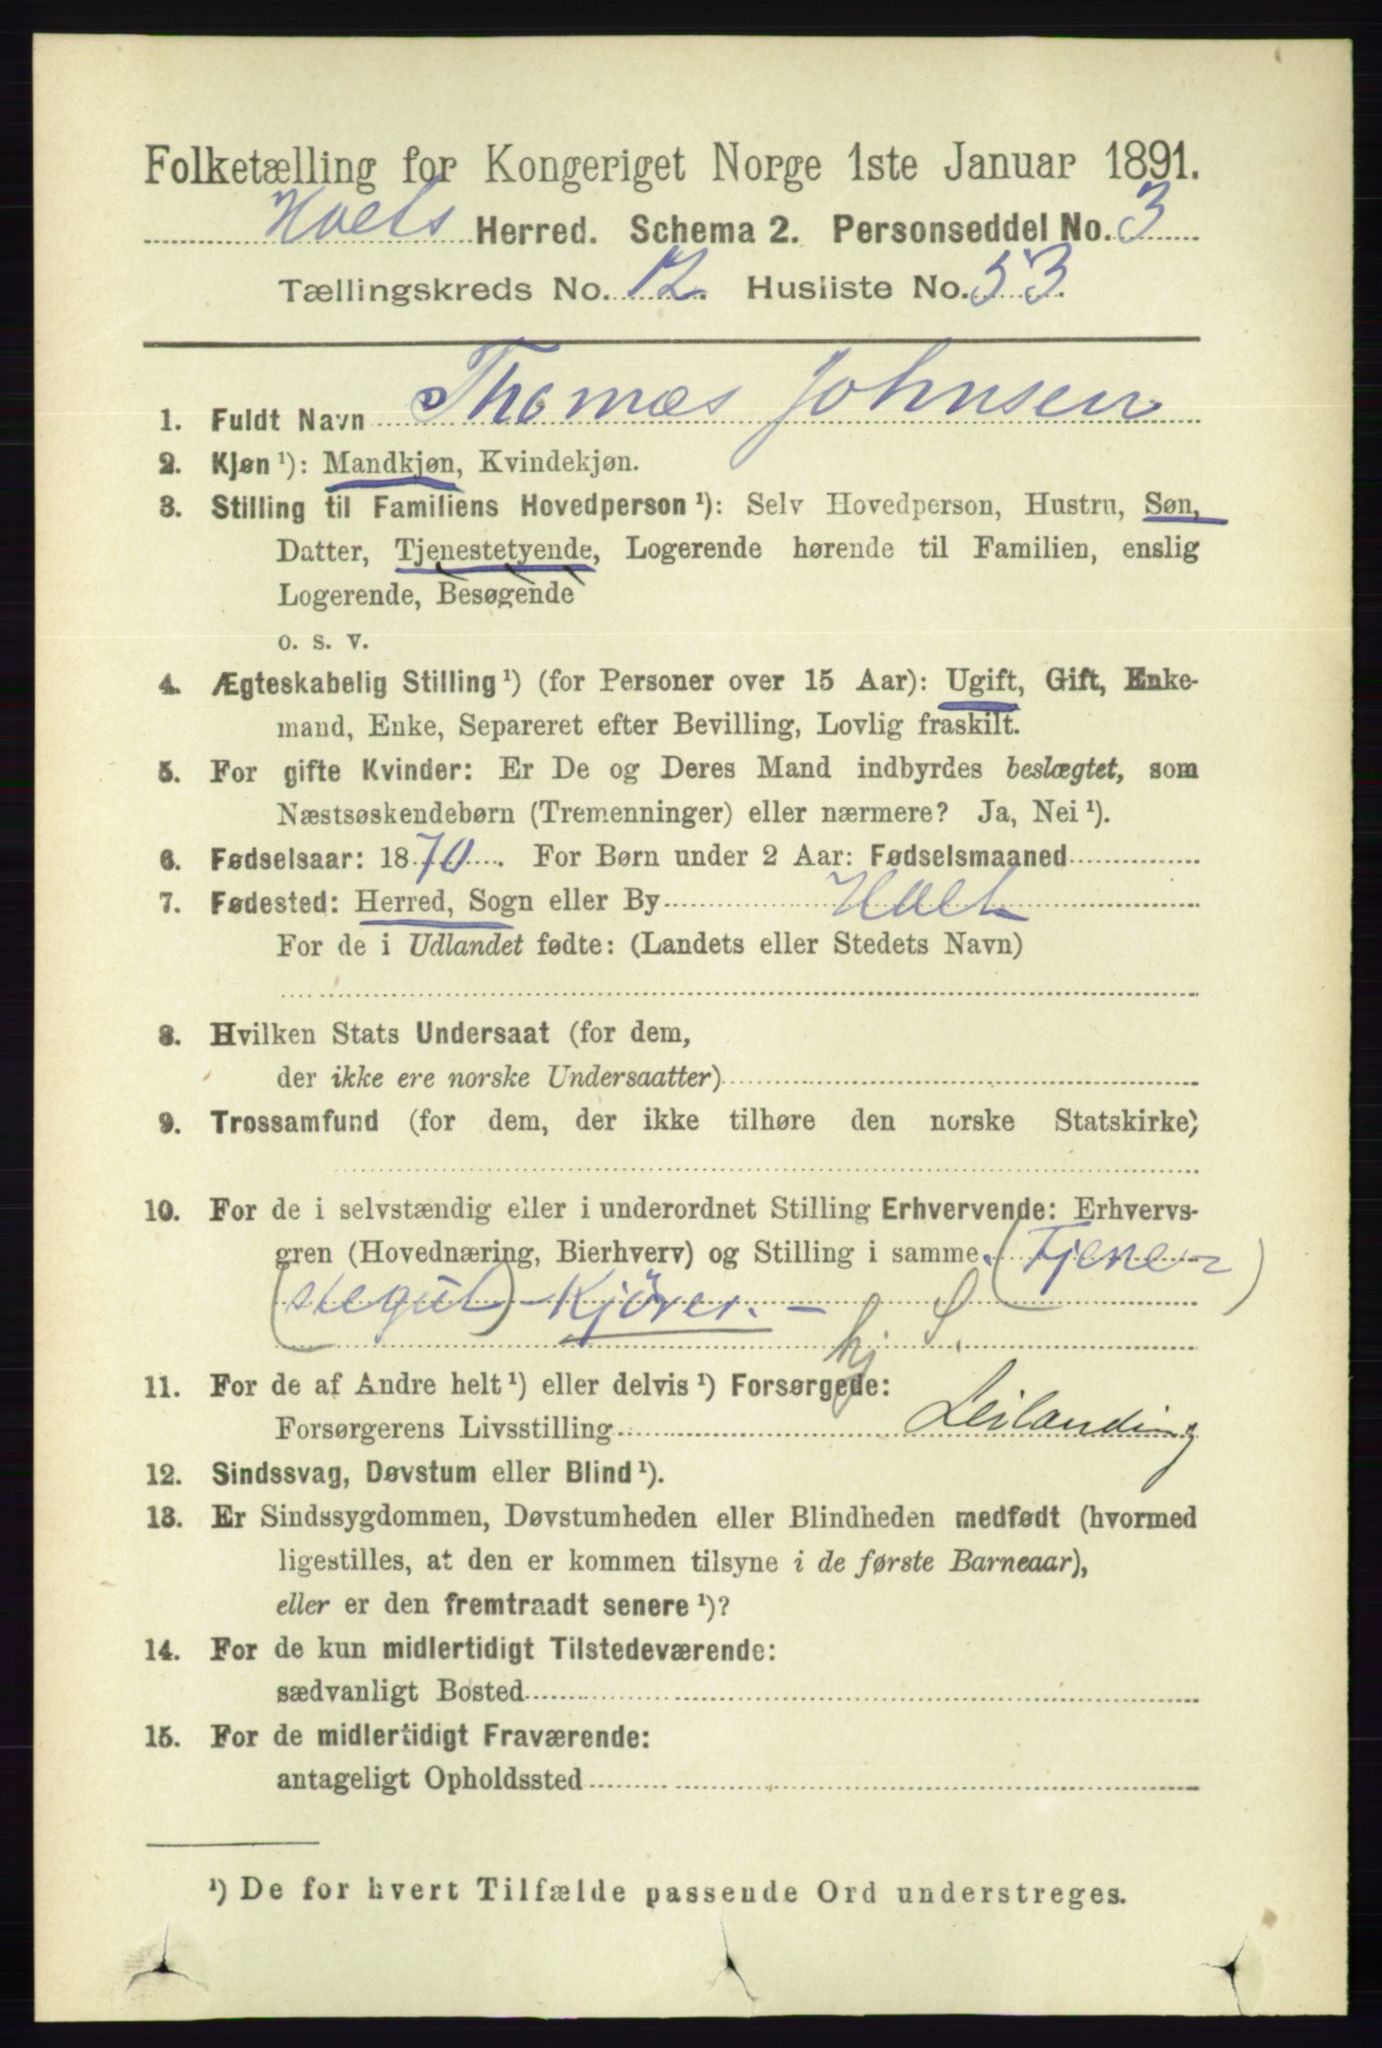 Folketælling for Kongeriget Norge 1ste Januar 1891.
Holts Herred. Schema 2. Personseddel No. 3
Tællingskreds No. 12. Husliste No. 53.
1. Fuldt Navn Thomas Johnsen
2. Kjøn ¹): Mandkjøn, Kvindekjøn.
3. Stilling til Familiens Hovedperson ¹): Selv Hovedperson, Hustru, Søn,
Datter, Tjenestetyende, Logerende hørende til Familien, enslig
Logerende, Besøgende
o. s. v.
4. Ægteskabelig Stilling ¹) (for Personer over 15 Aar): Ugift, Gift, Enke-
mand, Enke, Separeret efter Bevilling, Lovlig fraskilt.
5. For gifte Kvinder: Er De og Deres Mand indbyrdes beslægtet, som
Næstsøskendebørn (Tremenninger) eller nærmere? Ja, Nei ¹).
6. Fødselsaar: 1870. For Børn under 2 Aar: Fødselsmaaned
7. Fødested: Herred, Sogn eller By Holt
For de i Udlandet fødte: (Landets eller Stedets Navn)
8. Hvilken Stats Undersaat (for dem,
der ikke ere norske Undersaatter)
9. Trossamfund (for dem, der ikke tilhøre den norske Statskirke)
10. For de i selvstændig eller i underordnet Stilling Erhvervende: Erhvervs-
gren (Hovednæring, Bierhverv) og Stilling i samme. (Tjene-)
(stegut) - Kjörer. -
hj S.
11. For de af Andre helt ¹) eller delvis ¹) Forsørgede:
Forsørgerens Livsstilling Leilanding
12. Sindssvag, Døvstum eller Blind ¹).
13. Er Sindssygdommen, Døvstumheden eller Blindheden medfødt (hvormed
ligestilles, at den er kommen tilsyne i de første Barneaar),
eller er den fremtraadt senere ¹)?
14. For de kun midlertidigt Tilstedeværende:
sædvanligt Bosted
15. For de midlertidigt Fraværende:
antageligt Opholdssted
¹) De for hvert Tilfælde passende Ord understreges.